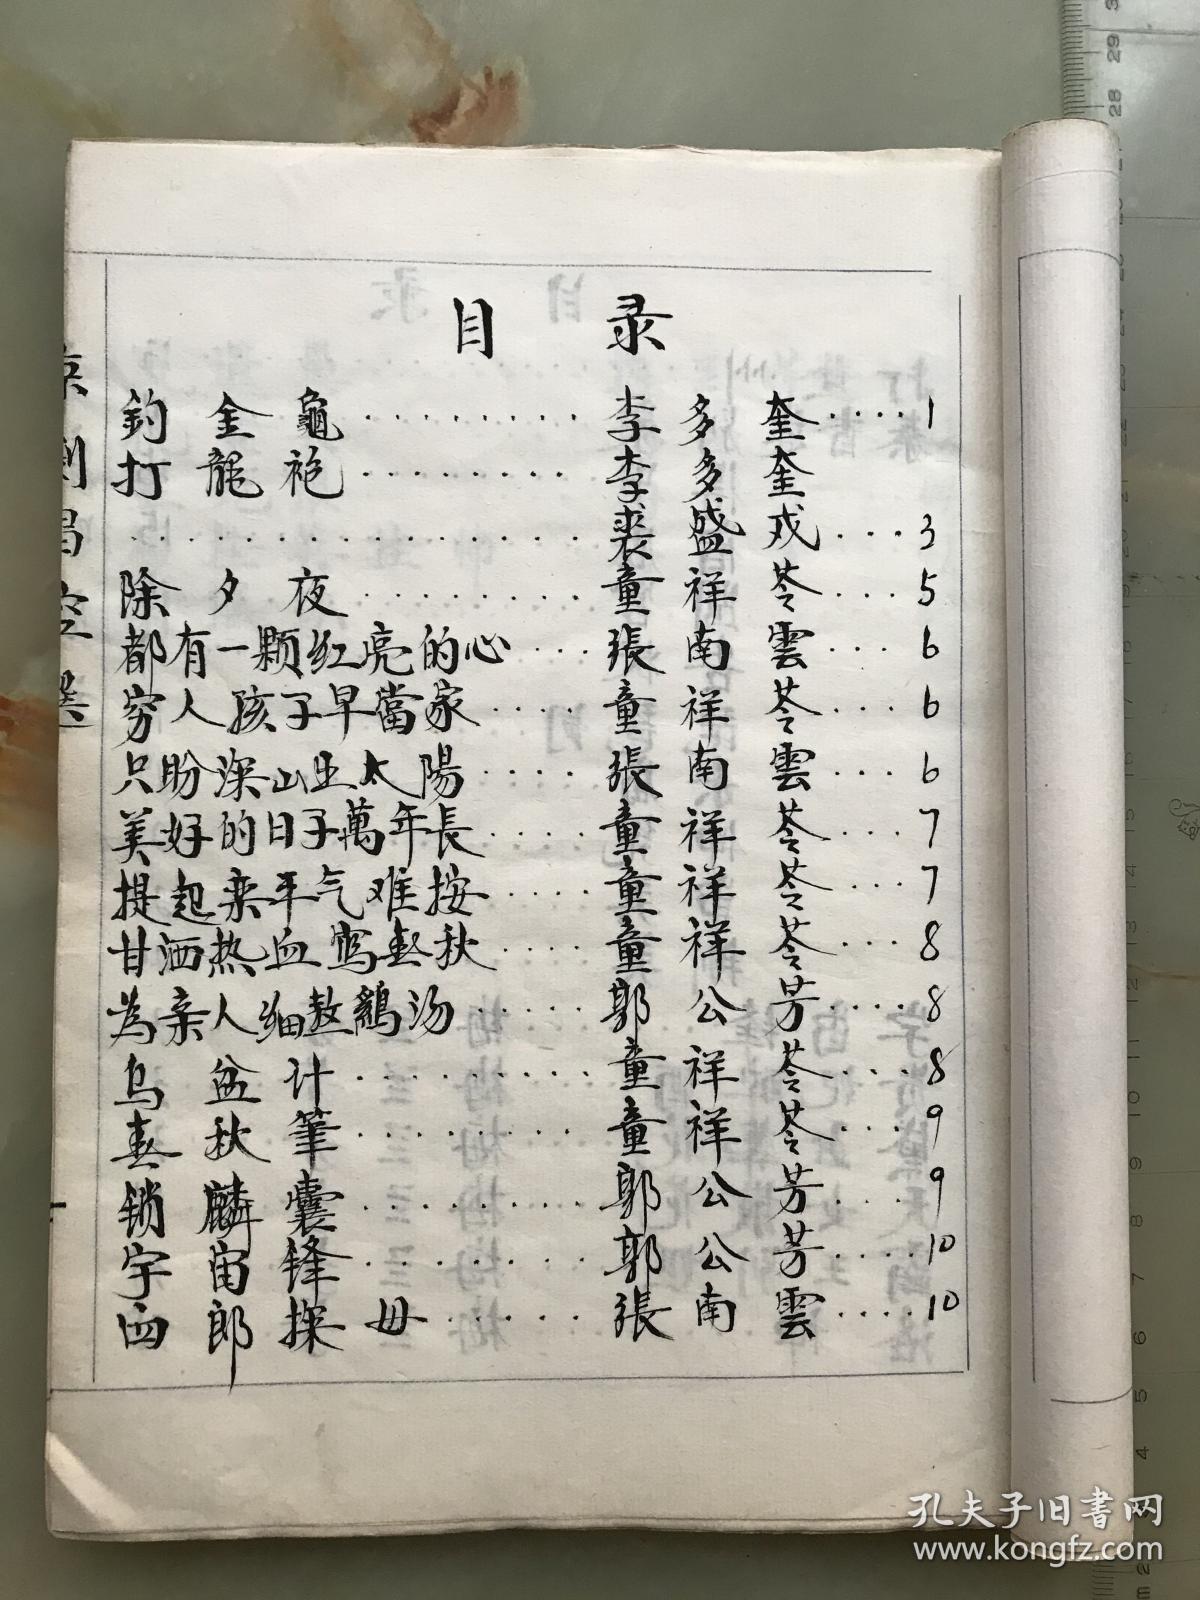 目 录
釣金龜··········李多奎····1
打龍袍··········李多奎
··········裘盛戎···3
除夕夜··········童祥苓···5
都有一颗红亮的心····張南雲···6
穷人孩子早當家····童祥苓···6
只盼深山出太陽····張南雲···6
美好的日子萬年長····童祥苓···7
提起栾平气难按····童祥苓···7
甘洒热血写春秋····童祥苓···8
為亲人细熬鷄汤····郭公芳···8
乌盆计··········童祥苓···8
春秋筆··········童祥苓···9
锁麟囊··········郭公芳···9
宇宙锋··········郭公芳····10
四郎探母········張南雲····10
孔夫子旧书网
www.kongfz.com